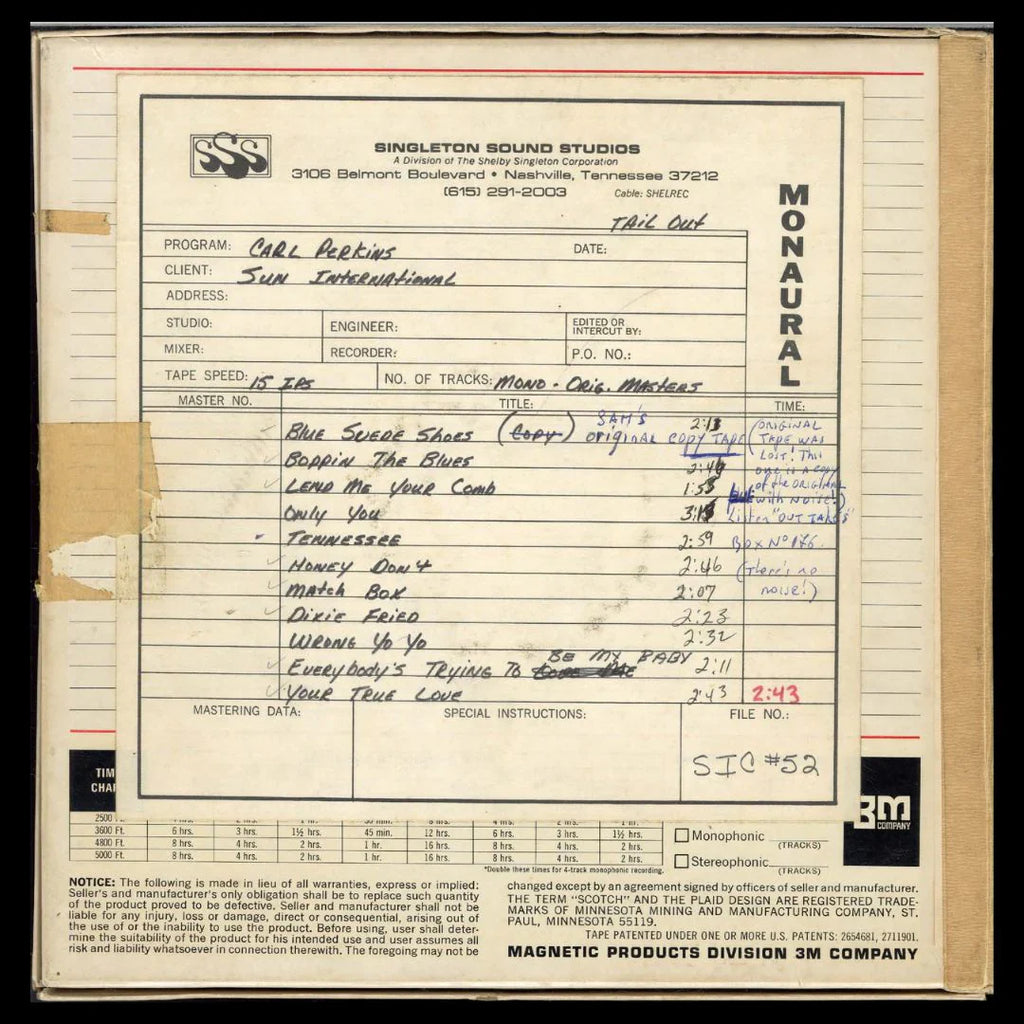 SSS
SINGLETON SOUND STUDIOS
A Division of The Shelby Singleton Corporation
3106 Belmont Boulevard • Nashville, Tennessee 37212
(615) 291-2003 Cable: SHELREC
MONAURAL
TAIL OUT
PROGRAM: CARL PERKINS DATE:
CLIENT: SUN INTERNATIONAL
ADDRESS:
STUDIO: ENGINEER: EDITED OR INTERCUT BY:
MIXER: RECORDER: P.O. NO.:
TAPE SPEED: 15 IPS NO. OF TRACKS: MONO - ORIG. MASTERS
MASTER NO. TITLE: TIME:
BLUE SUEDE SHOES (COPY) SAM'S original COPY TAPE 2:13
BOPPIN THE BLUES
LEND ME YOUR COMB
ONLY YOU
TENNESSEE 2:59
HONEY DON4 2:46
MATCH BOX 2:07
DIXIE FRIED 2:23
WRONG YO YO 2:32
EVERYBODY'S TRYING TO BE MY BABY 2:11
YOUR TRUE LOVE 2:43 2:43
(ORIGINAL
TAPE WAS
LOST! This
one is a copy
of the ORIGINAL
with NOISE!)
Listen "OUT TAKES"
BOX Nº 176
(There's no
noise!)
MASTERING DATA: SPECIAL INSTRUCTIONS: FILE NO.:
SIC #52
TIM
CHA
2500
3600 Ft. 6 hrs. 3 hrs. 1½ hrs. 45 min. 12 hrs. 6 hrs. 3 hrs. 1½ hrs.
4800 Ft. 8 hrs. 4 hrs. 2 hrs. 1 hr. 16 hrs. 8 hrs. 4 hrs. 2 hrs.
5000 Ft. 8 hrs. 4 hrs. 2 hrs. 1 hr. 16 hrs. 8 hrs. 4 hrs. 2 hrs.
*Double these times for 4-track monophonic recording.
Monophonic (TRACKS)
Stereophonic (TRACKS)
3M COMPANY
NOTICE: The following is made in lieu of all warranties, express or implied:
Seller's and manufacturer's only obligation shall be to replace such quantity
of the product proved to be defective. Seller and manufacturer shall not be
liable for any injury, loss or damage, direct or consequential, arising out of
the use of or the inability to use the product. Before using, user shall deter-
mine the suitability of the product for his intended use and user assumes all
risk and liability whatsoever in connection therewith. The foregoing may not be
changed except by an agreement signed by officers of seller and manufacturer.
THE TERM "SCOTCH" AND THE PLAID DESIGN ARE REGISTERED TRADE-
MARKS OF MINNESOTA MINING AND MANUFACTURING COMPANY, ST.
PAUL, MINNESOTA 55119.
TAPE PATENTED UNDER ONE OR MORE U.S. PATENTS: 2654681, 2711901.
MAGNETIC PRODUCTS DIVISION 3M COMPANY